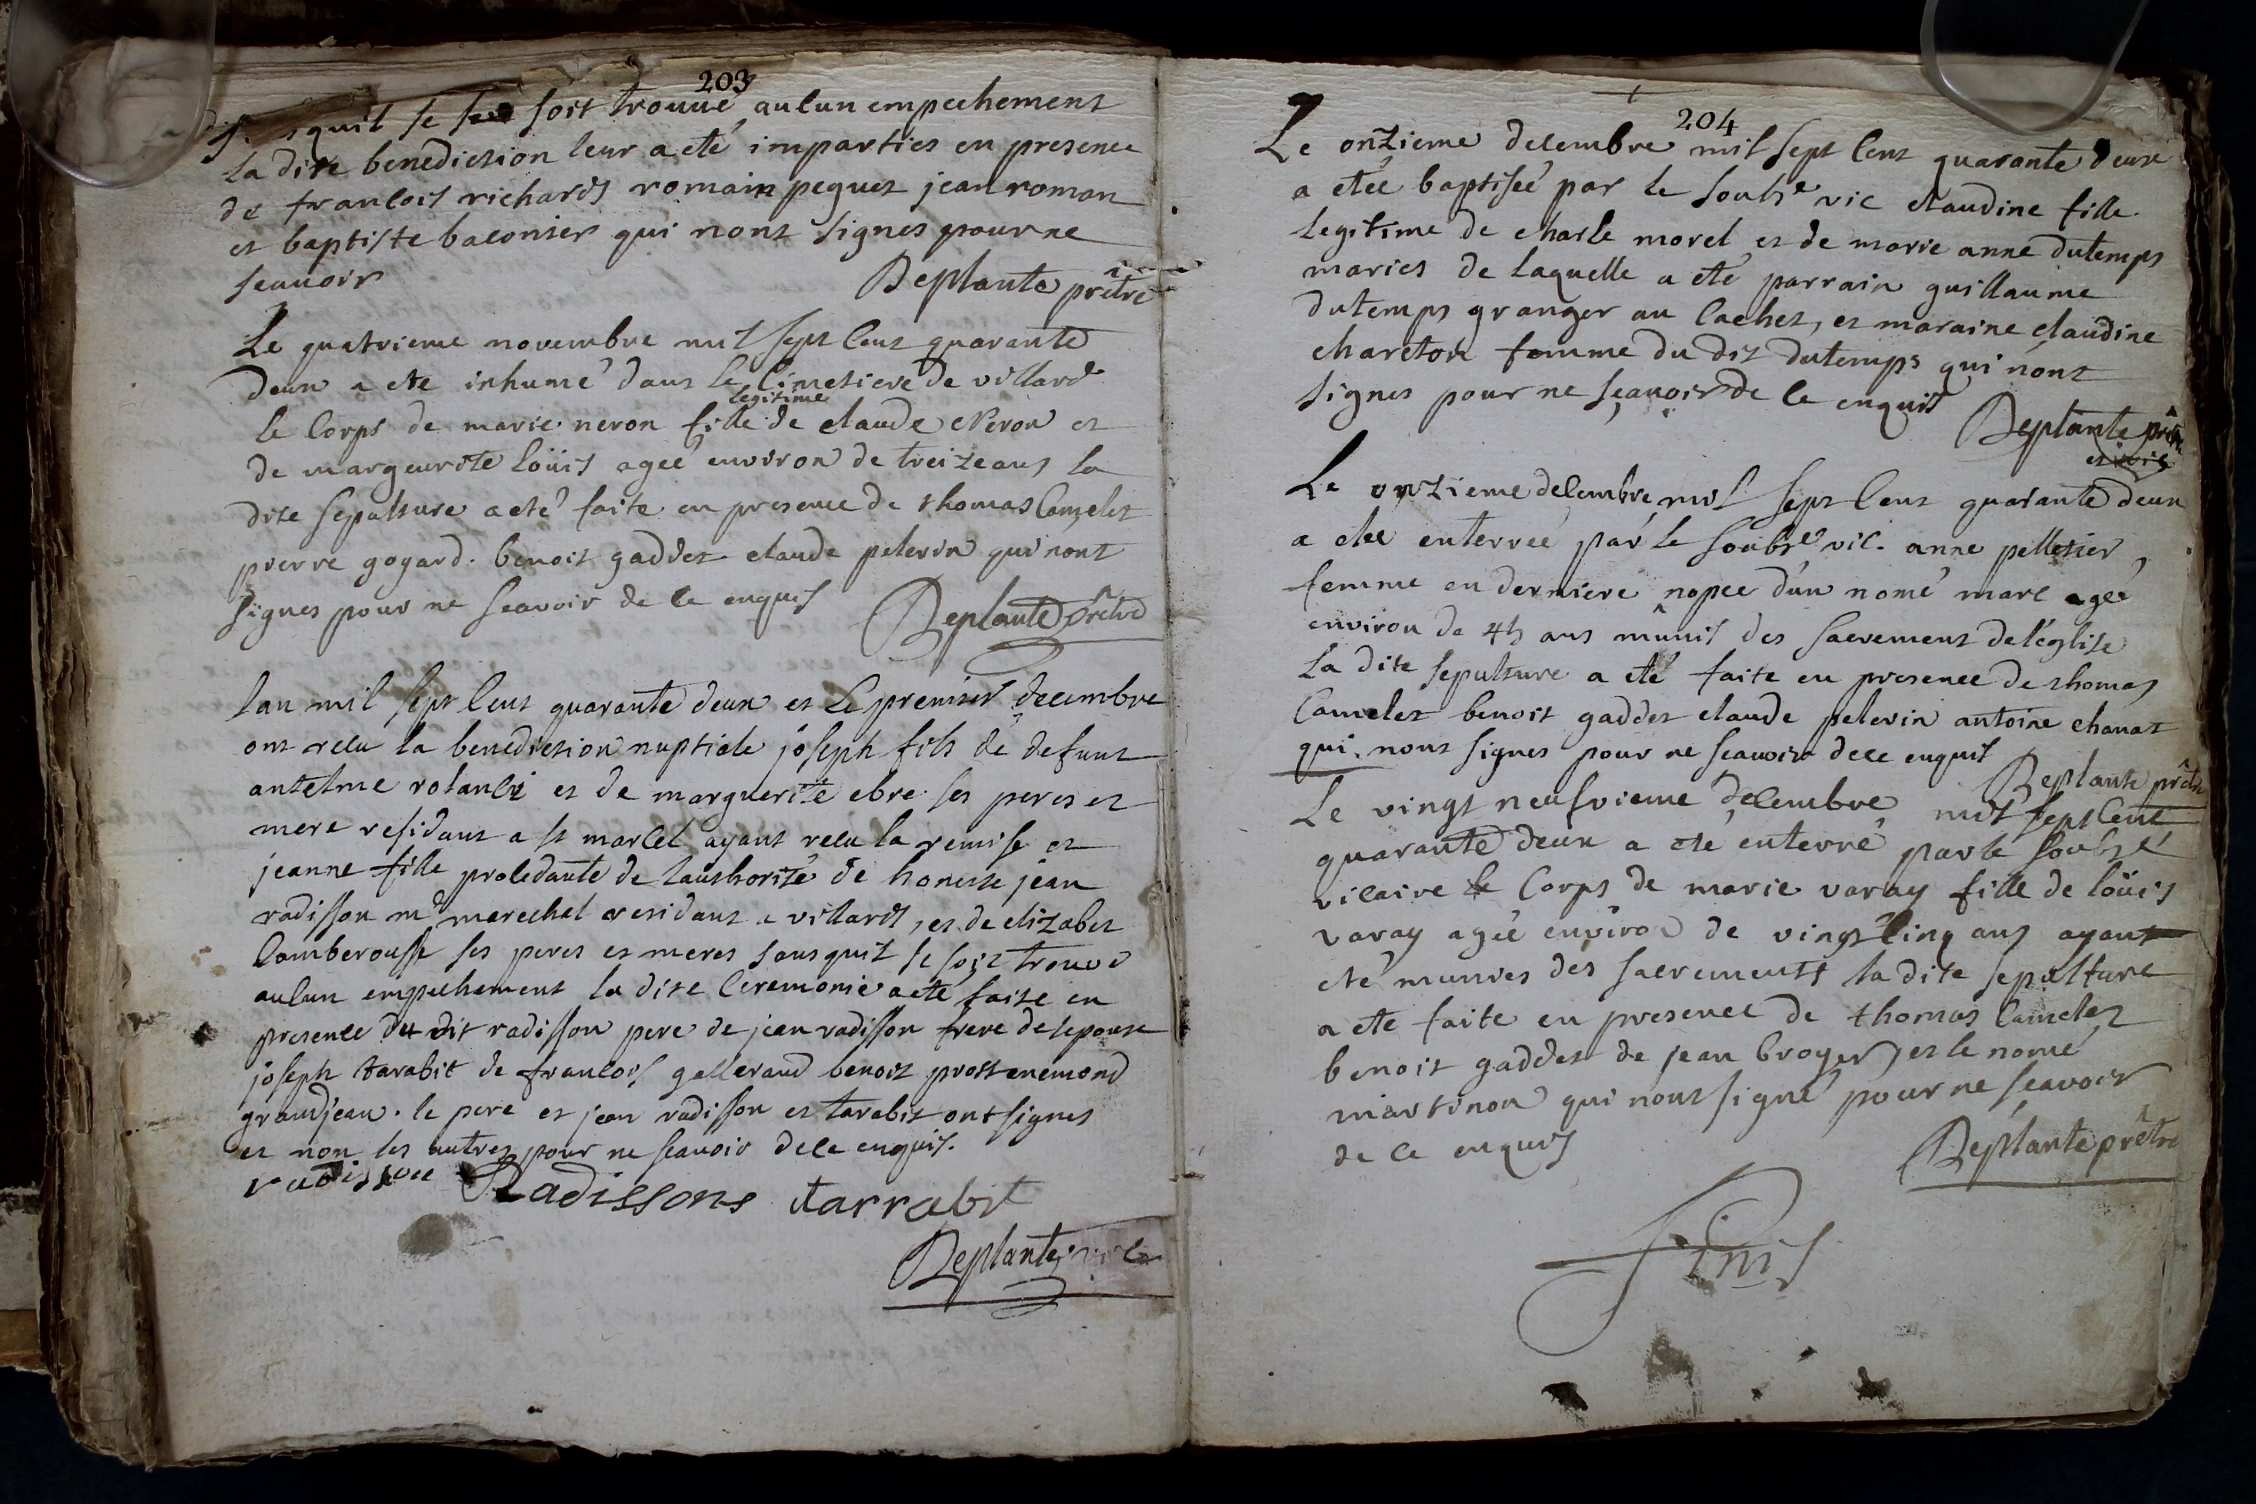 203
squil se soit trouué aucun empechement
la dite benediction leur a eté imparties en presence
de francois richard romain peguet jean roman
et baptiste baconier qui nont signes pour ne
scauoir
Deplante prêtre
Le quatrieme novembre mil sept cent quarante
deux a ete inhumé dans le Cimetiere de villard
legitime
le Corps de marie neron fille de claude Neron et
de margeurite loüis agée environ de treize ans la
dite sepulture a eté faite en presence de thomas Camelet
pierre gogard. benoit gaddet claude pelerin qui nont
signes pour ne scavoir de ce enquis
Deplante prêtre
lan mil sept cent quarante deux et Le premier decembre
ont recu la benediction nuptiale joseph fils de defunt
antelme et de marguerite ebre ses peres et
mere residant a st marcel ayant recu la remise et
jeanne fille procedante de lauthorité de honeste jean
radisson md marechal residant a villard, et de elizabet
Comberousse ses peres et meres sans quil se soit trouvé
aucun empechement la dite Ceremonie a eté faite en
presence du dit radisson pere de jean radisson frere de lepouse
joseph tarabit de francois galleraud benoit prost enemond
grandjean. le pere et jean radisson et tarabit ont signes
et non les autres pour ne scauoir de ce enquis.
radisson Radissons tarrabit
Deplante
204
Le onzieme decembre mil sept cent quarante deux
a etée baptisée par le soubse vic claudine fille
legitime de charle morel et de marie anne dutemps
maries de laquelle a eté parrain guillaume
dutemps granger au Cachet, et maraine claudine
chareton femme du dit dutemps qui nont
signes pour ne sçauoir de ce enquis
Deplante prêtre
et vic
Le onzieme decembre mil sept cent quarante deux
a etee enterrée par le soubse vic. anne pelletier,
femme en derniere nopce d'un nomé marc agée
environ de 45 ans munis des sacrement de l'église
la dite sepulture a eté faite en presence de thomas
Camelet benoit gaddet claude pelerin antoine chanat
qui nont signes pour ne scauoir de ce enquis
Deplante prêtre
Le vingt neufvieme decembre mil sept cent
quarante deux a ete enterré par le soubsé
vicaire le Corps de marie varay fille de loüis
varay agée environ de vingt cinq ans ayant
eté munies des sacrements la dite sepulture
a ete faite en presence de thomas Camelet
benoit gaddet de jean broyer, et le nomé
martinon qui nont signé pour ne scavoir
de ce enquis
Deplante prêtre
Finis